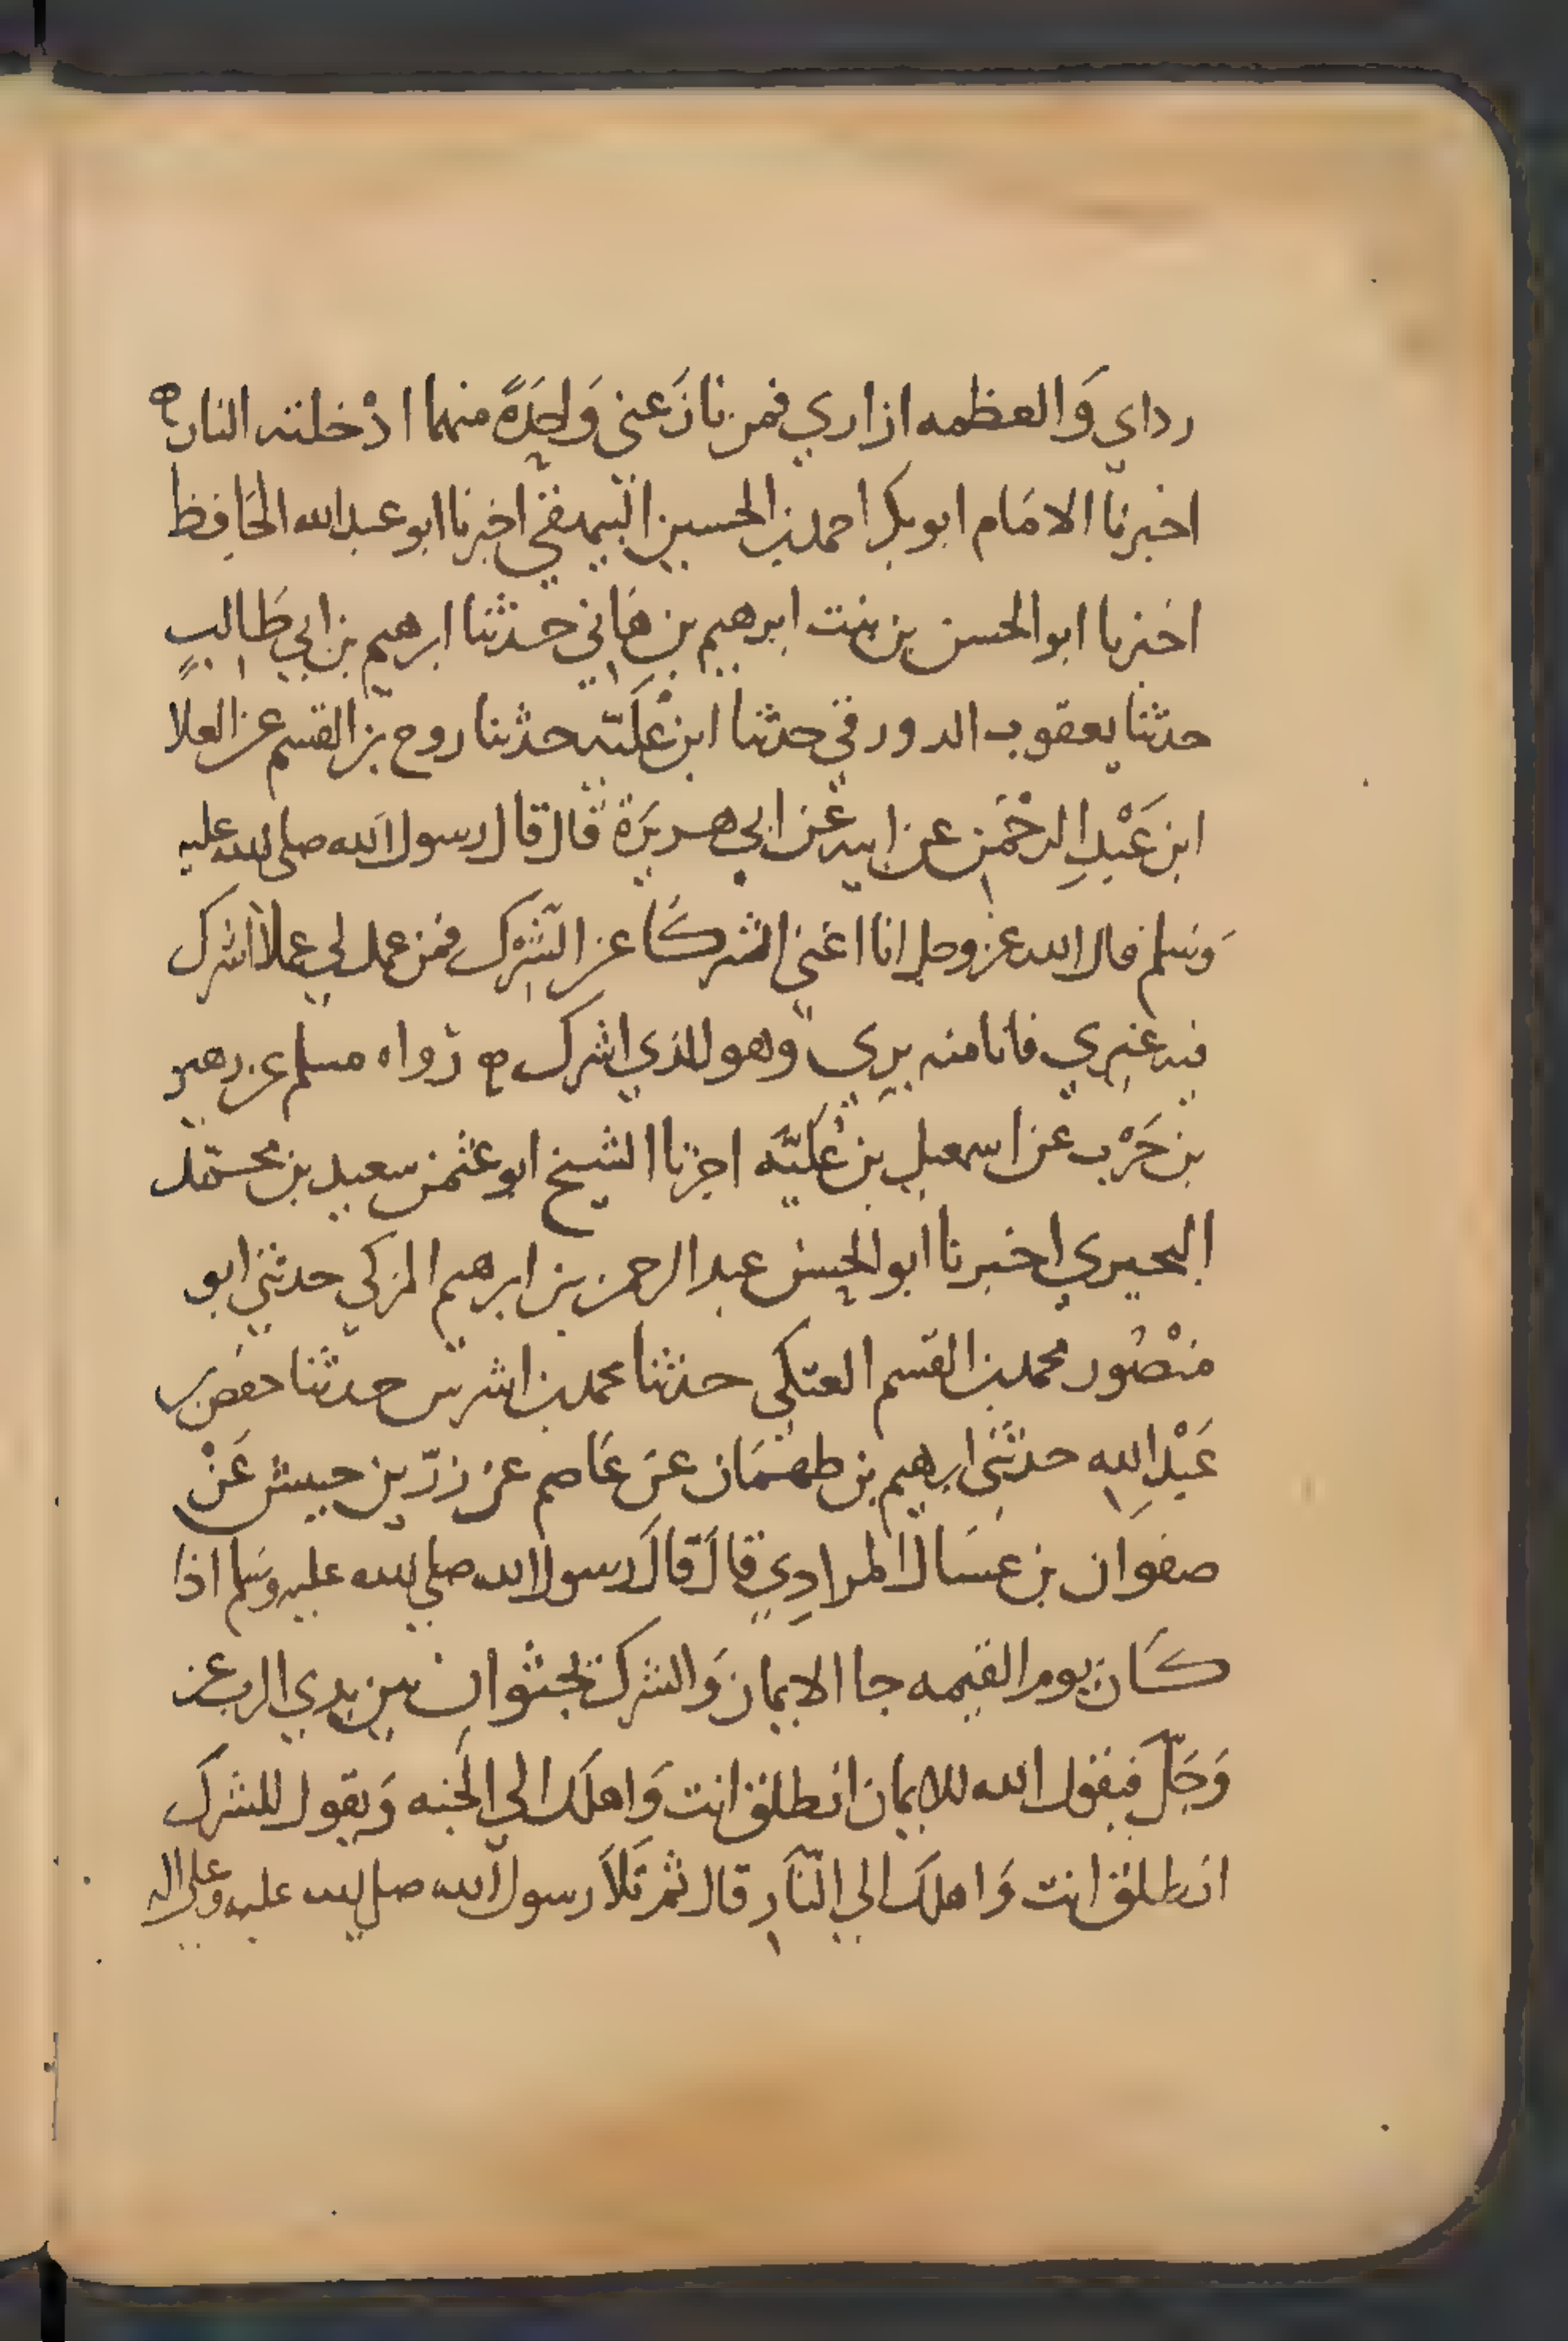 رداي وَالعظمه ازاري فمن نازَعني وَاحِدَةً منهما ادْخلته النار ه
اخبرنا الامَام ابو بكر احمد بن الحسين البيهقي اخبرنا ابو عبد الله الحَافِظ
اخبرنا ابو الحسن بن بنت ابرهيم بن هَاني حدثنا ابرهيم بن ابي طَالبٍ
حدثنا يعقوب الدورقي حدثنا ابن عُلَيّه حدثنا روح بن القسم عن العلا
ابن عَبْدِ الرحْمَن عن ابيه عَن ابي هريرَة قال قال رسول الله صلى الله عليه
وَسَلم قال الله عز وجل انا اغني الشركَا عن الشِرْك فمن عمل لي عملا اشرك
فيه غيري فانا منه بري وهو للذي اشرك ه رَواه مسلم عن زهير
بن حَرْب عن اسمعيل بن عُليَّه اخبرنا الشيخ ابو عثمن سعيد بن محمّد
البحيري اخبرنا ابو الحسن عبد الرحمن بن ابرهيم المزكي حدثني ابو
منْصُور محمد بن القسم العتكي حدثنا محمد بن اشرس حدثنا حفص بن
عَبْدِ اللهِ حدثَني ابرهيم بن طهْمَان عَن عَاصم عن زرّ بن حبيش عَنْ
صفوَان بن عَسَال المرادِي قالَ قالَ رسول الله صلي الله عليه وسَلم اذا
كَان يوم القيمه جا الايمان وَالشرك يجثوان بين يدي الرب عز
وَجَلّ فيقول الله للايمان انطلق انت وَاهلك الي الجَنه وَيقول للشرك
انطلق انت وَاهلكَ الي النّارِ قال ثم تَلاَ رسول الله صلي الله عليه وعلى اله